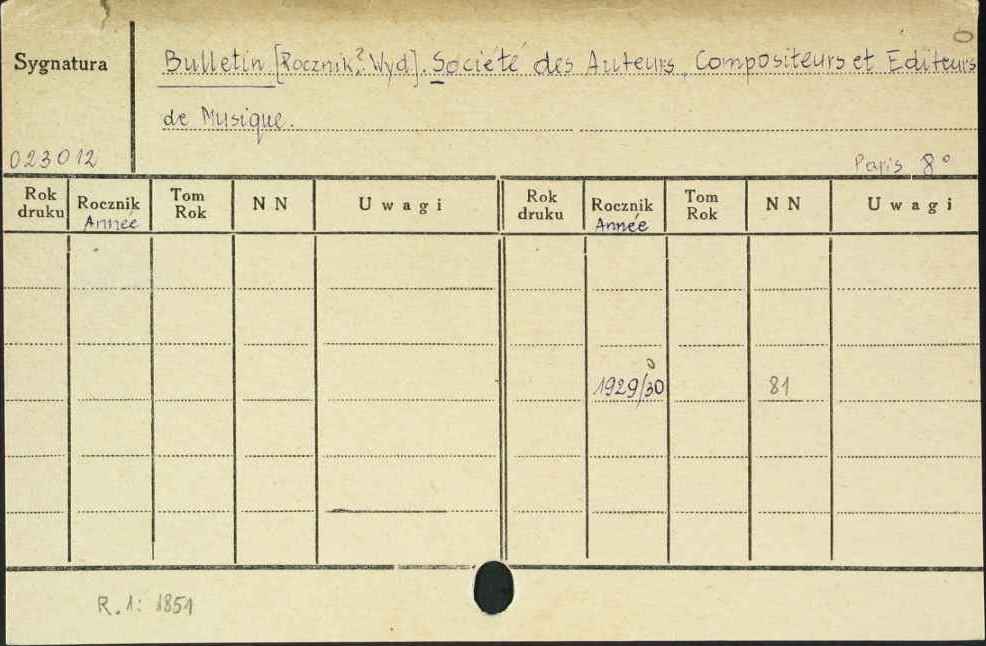 0
Sygnatura
Bulletin [Rocznik? Wyd]. Société des Auteurs, Compositeurs et Editeurs
de Musique.
023012
Paris 8°
Rok druku Rocznik Année Tom Rok N N Uwagi Rok druku Rocznik Année Tom Rok N N Uwagi
0
1929/30 81
R. 1: 1851